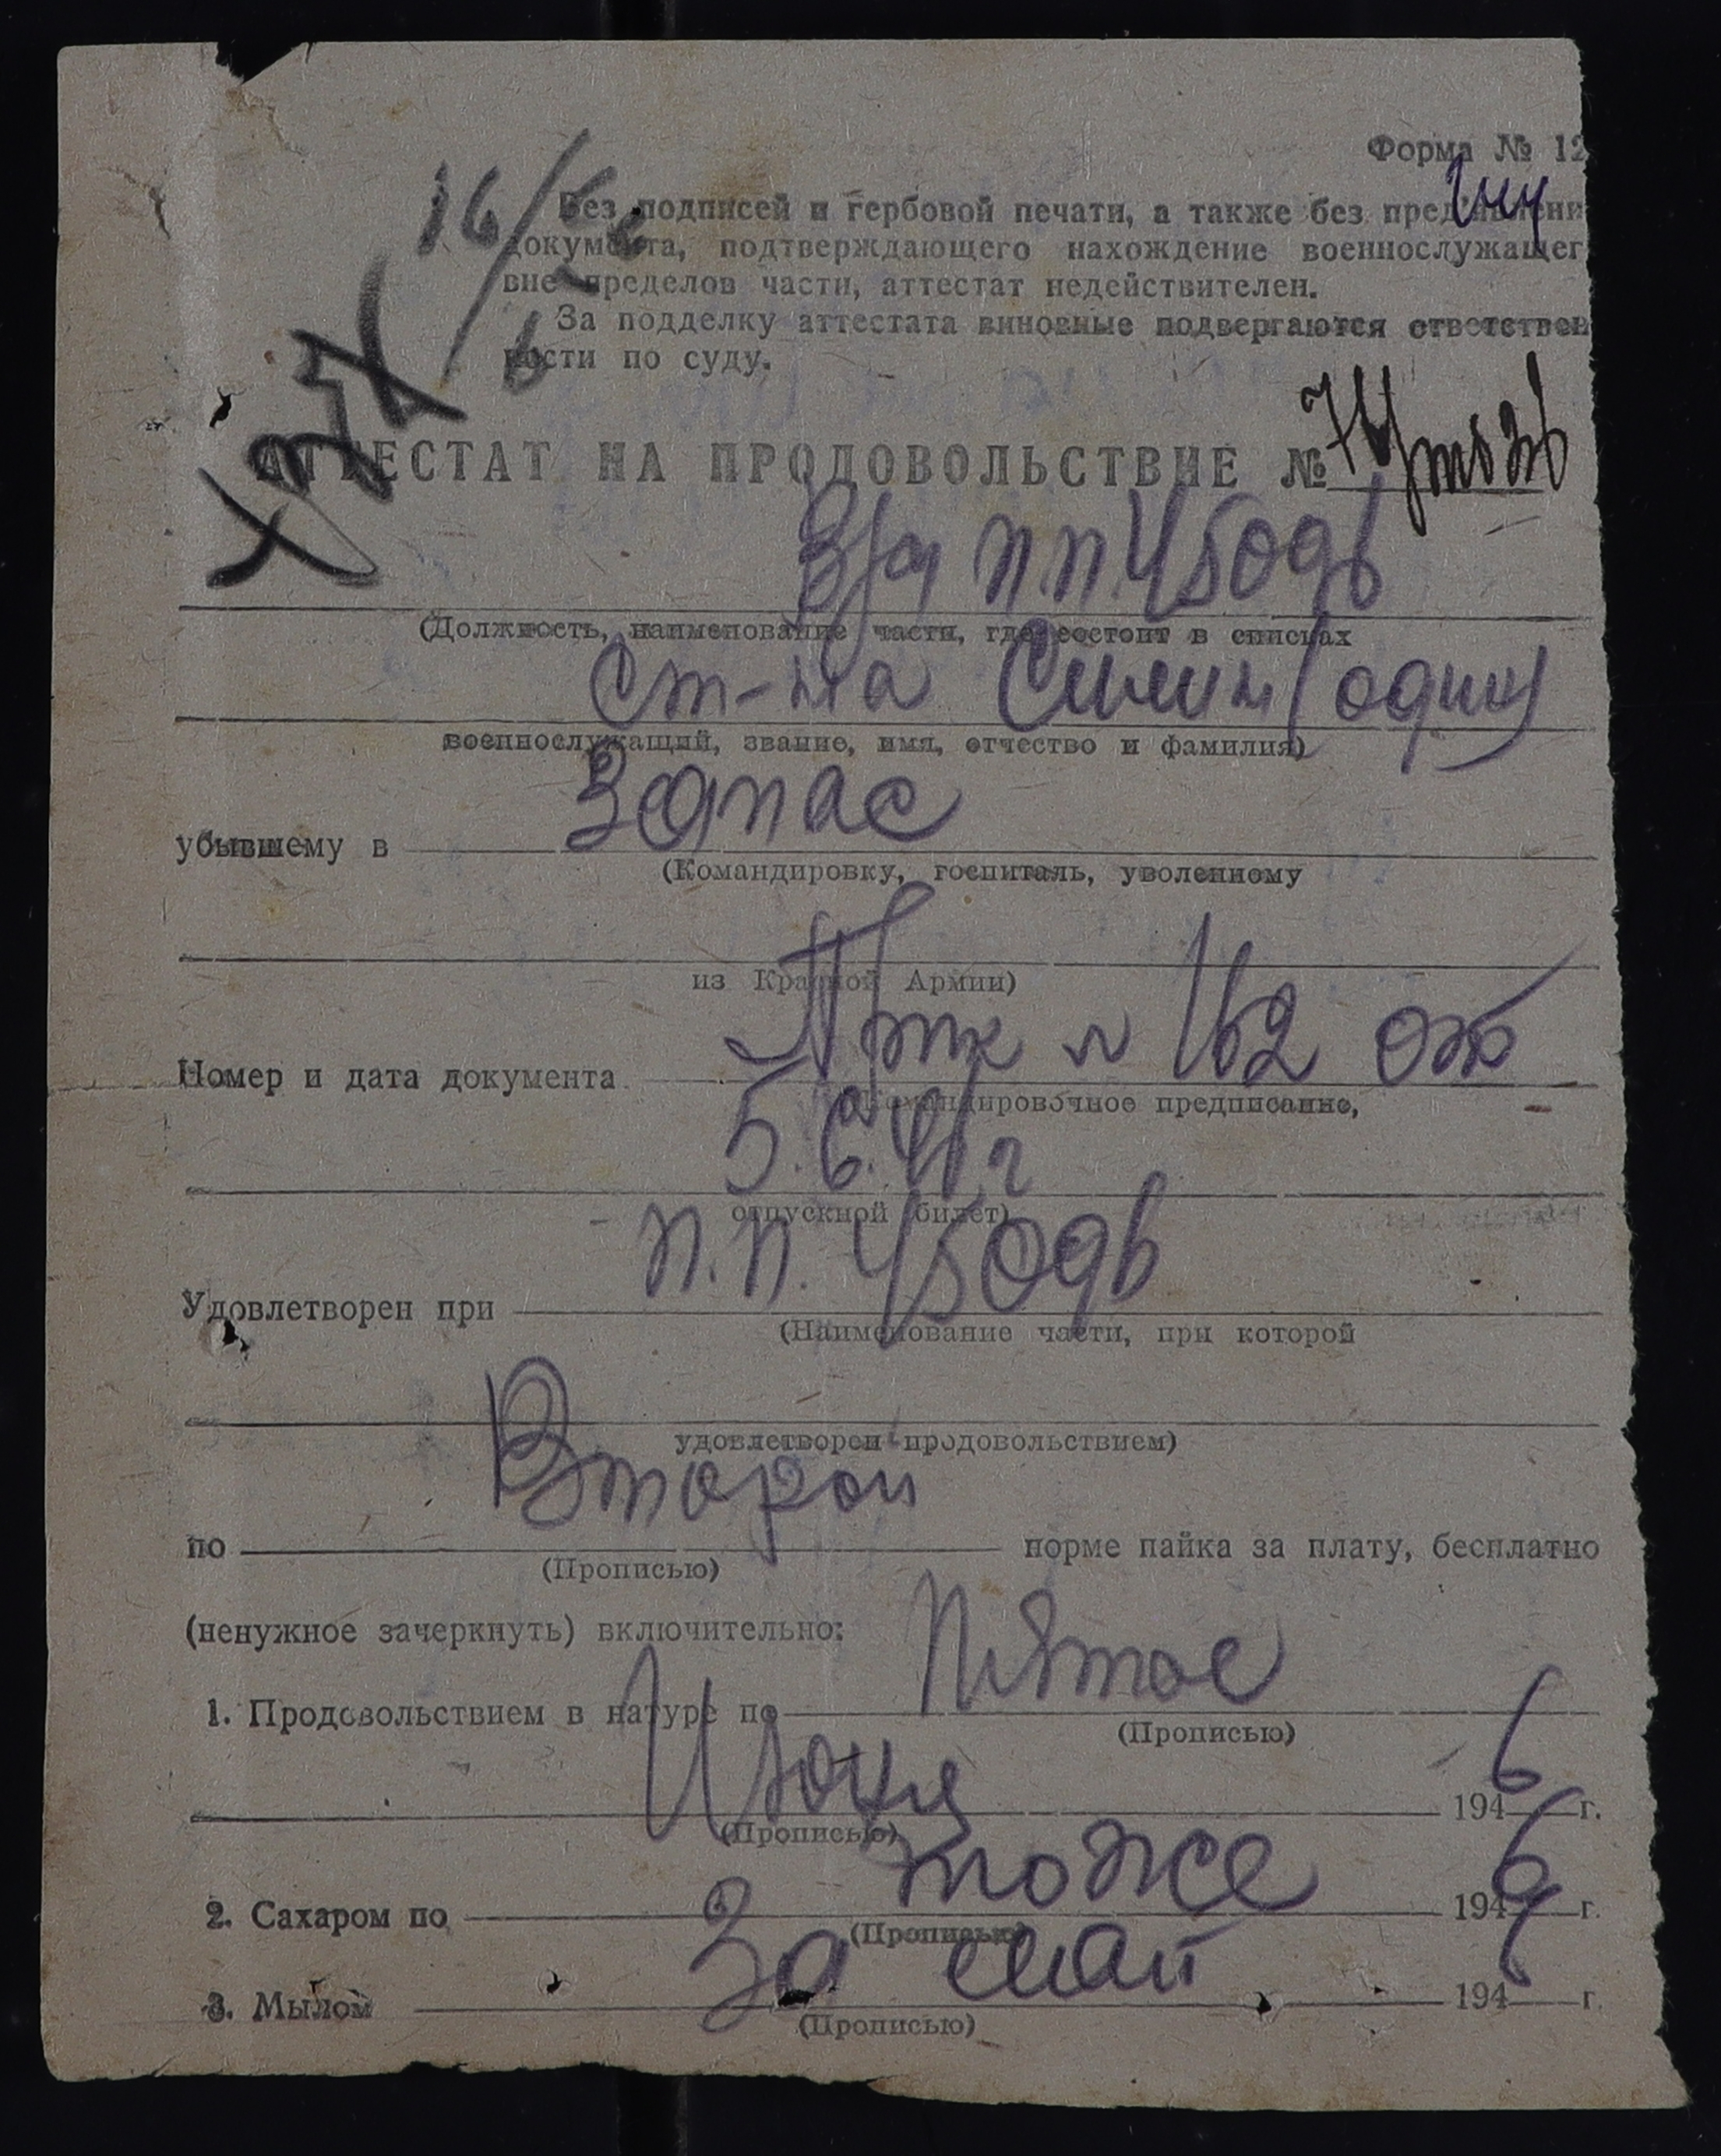 Форма № 12
16/
6
Без подписей и гербовой печати, а также без предъявлени
документа, подтверждающего нахождение военнослужащег
вне пределов части, аттестат недействителен.
За подделку аттестата виновные подвергаются ответствен
ности по суду.
АТТЕСТАТ НА ПРОДОВОЛЬСТВИЕ №
п.п. 4509в
(Должность, наименование части, где состоит в списках
Ст-на Силин (один)
военнослужащий, звание, имя, отчество и фамилия)
убывшему в Запас
(Командировку, госпиталь, уволенному
из Красной Армии)
Номер и дата документа № 162 от
(Командировочное предписание,
5.6.46 г
отпускной билет)
Удовлетворен при п.п. 4509в
(Наименование части, при которой
удовлетворен продовольствием)
по Второй норме пайка за плату, бесплатно
(Прописью)
(ненужное зачеркнуть) включительно:
1. Продовольствием в натуре по Пятое
(Прописью)
Июня 1946 г.
(Прописью)
2. Сахаром по тоже 1946 г.
(Прописью)
3. Мылом За май 1946 г.
(Прописью)